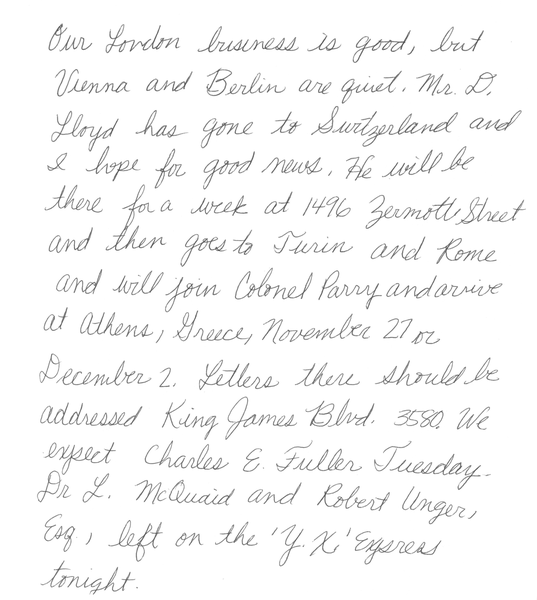 Our London business is good, but
Vienna and Berlin are quiet. Mr. D.
Lloyd has gone to Switzerland and
I hope for good news. He will be
there for a week at 1496 Zermott Street
and then goes to Turin and Rome
and will join Colonel Parry and arrive
at Athens, Greece, November 27 or
December 2. Letters there should be
addressed King James Blvd. 3580. We
expect Charles E. Fuller Tuesday.
Dr L. McQuaid and Robert Unger,
Esq., left on the 'Y. X.' Express
tonight.